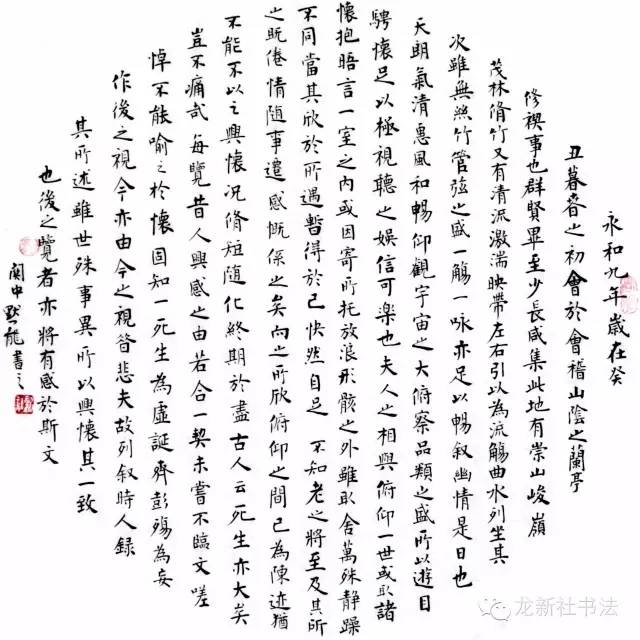 永和九年歲在癸
丑暮春之初會於會稽山陰之蘭亭
修禊事也群賢畢至少長咸集此地有崇山峻嶺
茂林脩竹又有清流激湍映帶左右引以為流觴曲水列坐其
次雖無絲竹管弦之盛一觴一咏亦足以暢叙幽情是日也
天朗氣清惠風和暢仰觀宇宙之大俯察品類之盛所以遊目
騁懷足以極視聽之娛信可樂也夫人之相與俯仰一世或取諸
懷抱晤言一室之內或因寄所托放浪形骸之外雖取舍萬殊靜躁
不同當其欣於所遇暫得於己快然自足 不知老之將至及其所
之既倦情隨事遷感慨係之矣向之所欣俯仰之間已為陳迹猶
不能不以之興懷況脩短隨化終期於盡古人云死生亦大矣
豈不痛哉每覽昔人興感之由若合一契未嘗不臨文嗟
悼不能喻之於懷固知一死生為虛誕齊彭殤為妄
作後之視今亦由今之視昔悲夫故列叙時人錄
其所述雖世殊事異所以興懷其一致
也後之覽者亦將有感於斯文
関中默龍書之
龙新社书法